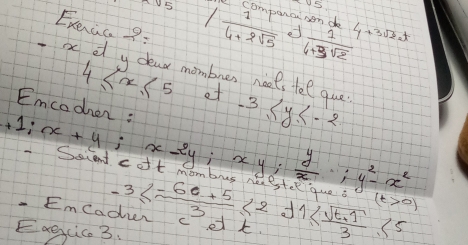 √5
comparaison de 4+3√2 et
1/(4+2√5) et 1/(4+3√2)
Exercice 2:
- x et y deux nombres réels tel que:
4 ≤ x ≤ 5 et -3 ≤ y ≤ -2
Encadrer :
+1; x+y; x-2y; xy; y/x; y²-x²
- Soient c et t nombres réels tel que: (t>0)
-3 ≤ (-6c+5)/3 ≤ 2 et 1 ≤ √(t+1)/3 ≤ 5
- Encadrer c et t.
Exercice 3: